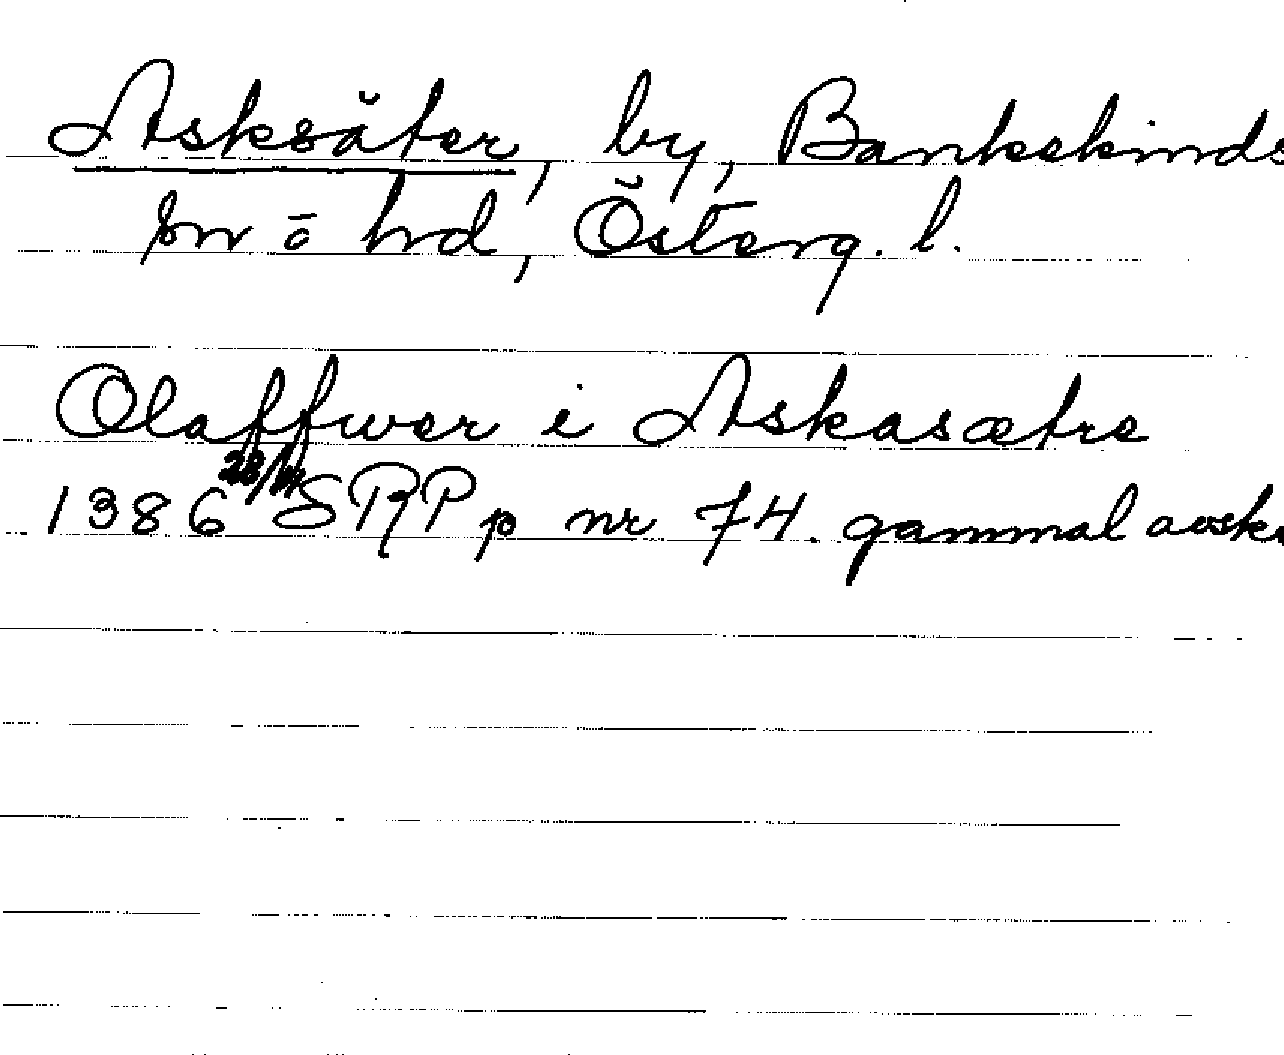 Asksäter, by, Bankekinds
sn o hd, Österg. l.
Olaffwer i Askasætre
1386 SRP p nr 74. gammal avskr